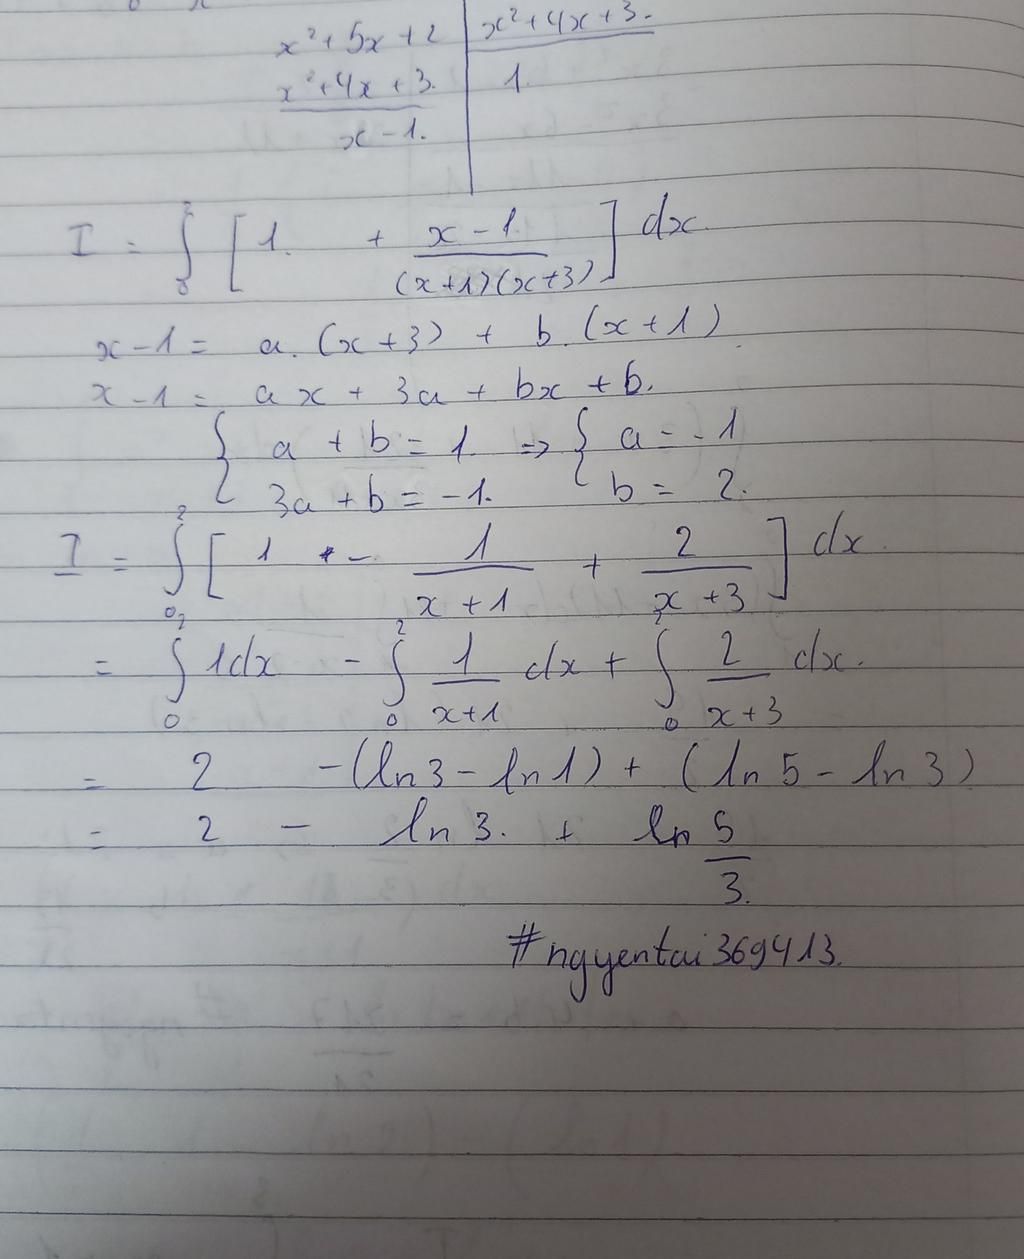 x²+5x+2 | x²+4x+3.
x²+4x+3. | 1.
x-1.
I = ∫₀² [1. + (x-1.)/((x+1)(x+3))] dx
x-1 = a.(x+3) + b.(x+1)
x-1 = ax + 3a + bx + b.
{ a + b = 1. => { a = -1
3a + b = -1. b = 2.
I = ∫₀² [1 - 1/(x+1) + 2/(x+3)] dx.
= ∫₀² 1dx - ∫₀² 1/(x+1) dx + ∫₀² 2/(x+3) dx.
= 2 -(ln3 - ln1) + (ln5 - ln3)
= 2 - ln3. + ln 5/3.
#ngyentai369413.